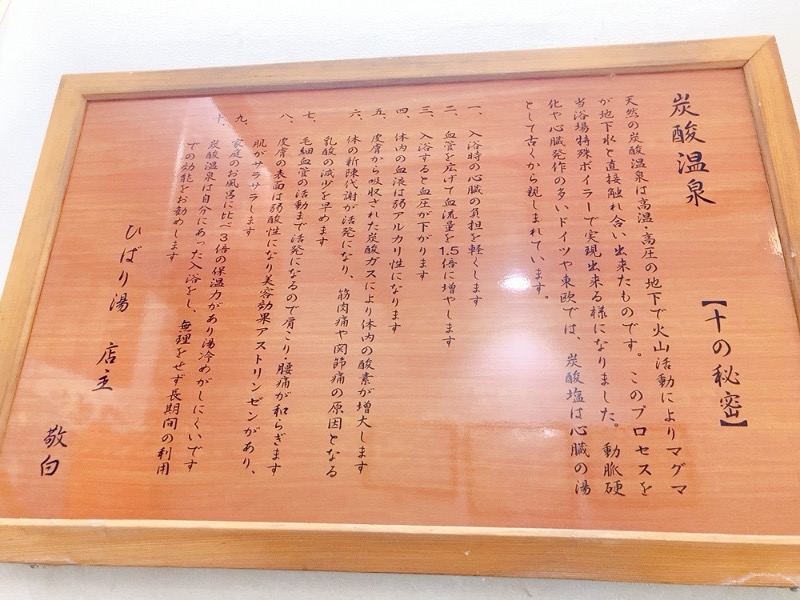 炭酸温泉 【十の秘密】
天然の炭酸温泉は高温・高圧の地下で火山活動によりマグマ
が地下水と直接触れ合い出来たものです。このプロセスを
当浴場特殊ボイラーで実現出来る様になりました。動脈硬
化や心臓発作の多いドイツや東欧では、炭酸塩は心臓の湯
として古くから親しまれています。
一、入浴時の心臓の負担を軽くします
二、血管を広げて血流量を1.5倍に増やします
三、入浴すると血圧が下がります
四、体内の血液は弱アルカリ性になります
五、皮膚から吸収された炭酸ガスにより体内の酸素が増大します
六、体の新陳代謝が活発になり、筋肉痛や関節痛の原因となる
乳酸の減少を早めます
七、毛細血管の活動まで活発になるので肩こり・腰痛が和らぎます
八、皮膚の表面は弱酸性になり美容効果アストリンゼンがあり、
肌がサラサラします
九、家庭のお風呂に比べ3倍の保温力があり湯冷めがしにくいです
十、炭酸温泉は自分にあった入浴をし、無理をせず長期間の利用
での効能をお勧めします
ひばり湯 店主
敬白